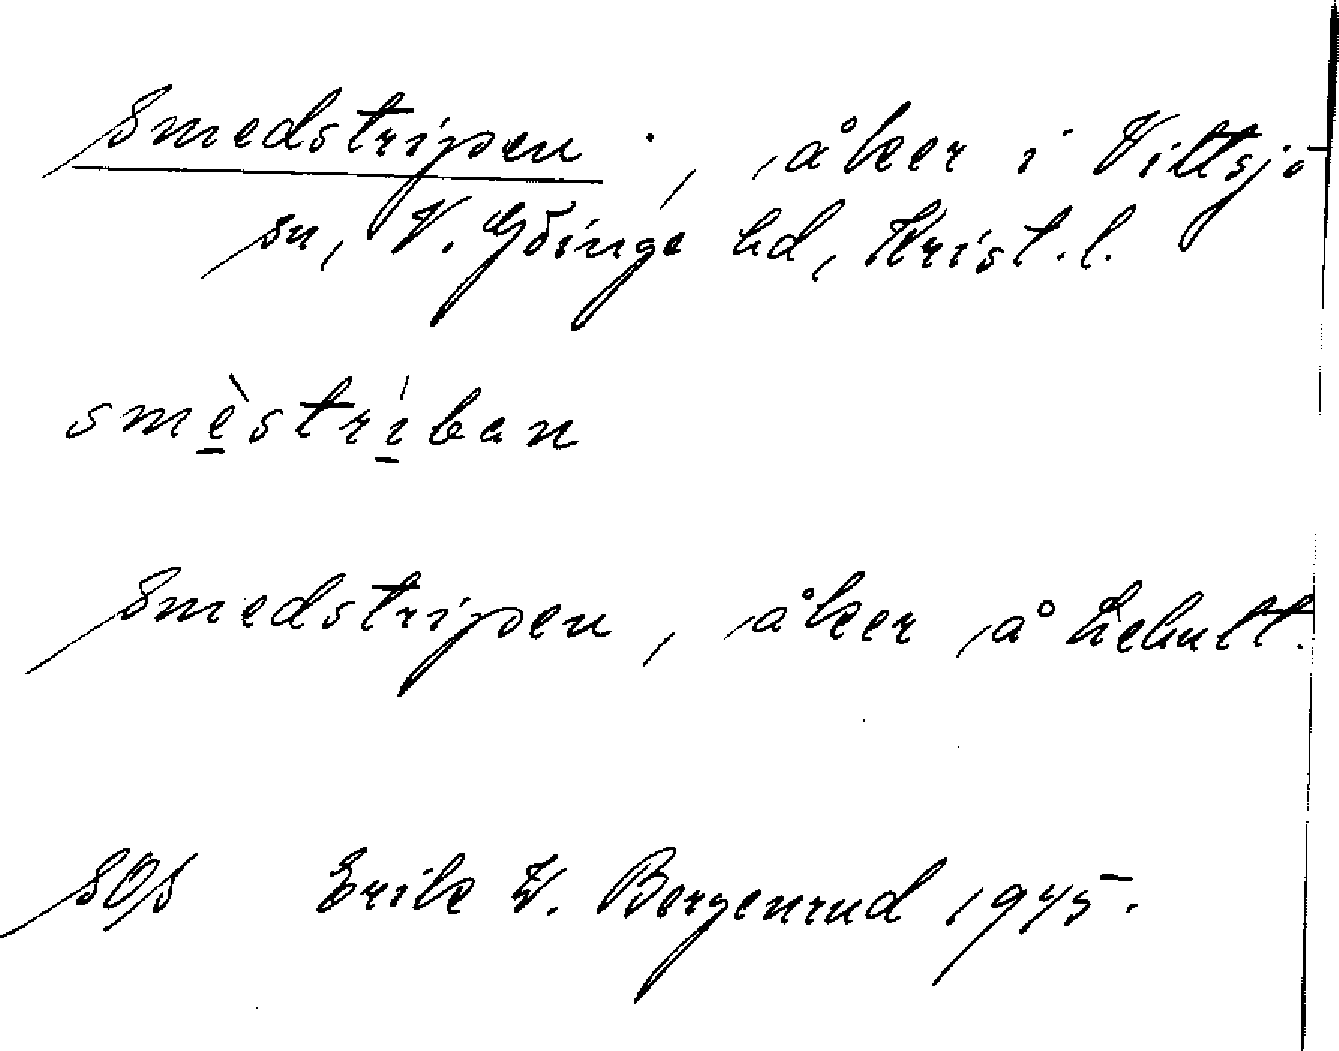 Smedstripen, åker i Vittsjö
sn, V. Göinge hd, Krist. l.
smèstríban
Smedstripen, åker å Lehult.
SOS Erik W. Bergenrud 1945.